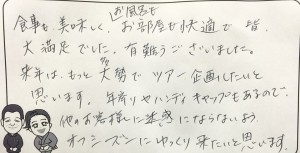 食事も美味しく、お風呂もお部屋も快適で皆
大満足でした。有難うございました。
来年は、もっと多勢大勢でツアー企画したいと
思います。年寄りやハンディキャップもあるので、
他のお客様に迷惑にならないよう
オフシーズンにゆっくり来たいと思います。